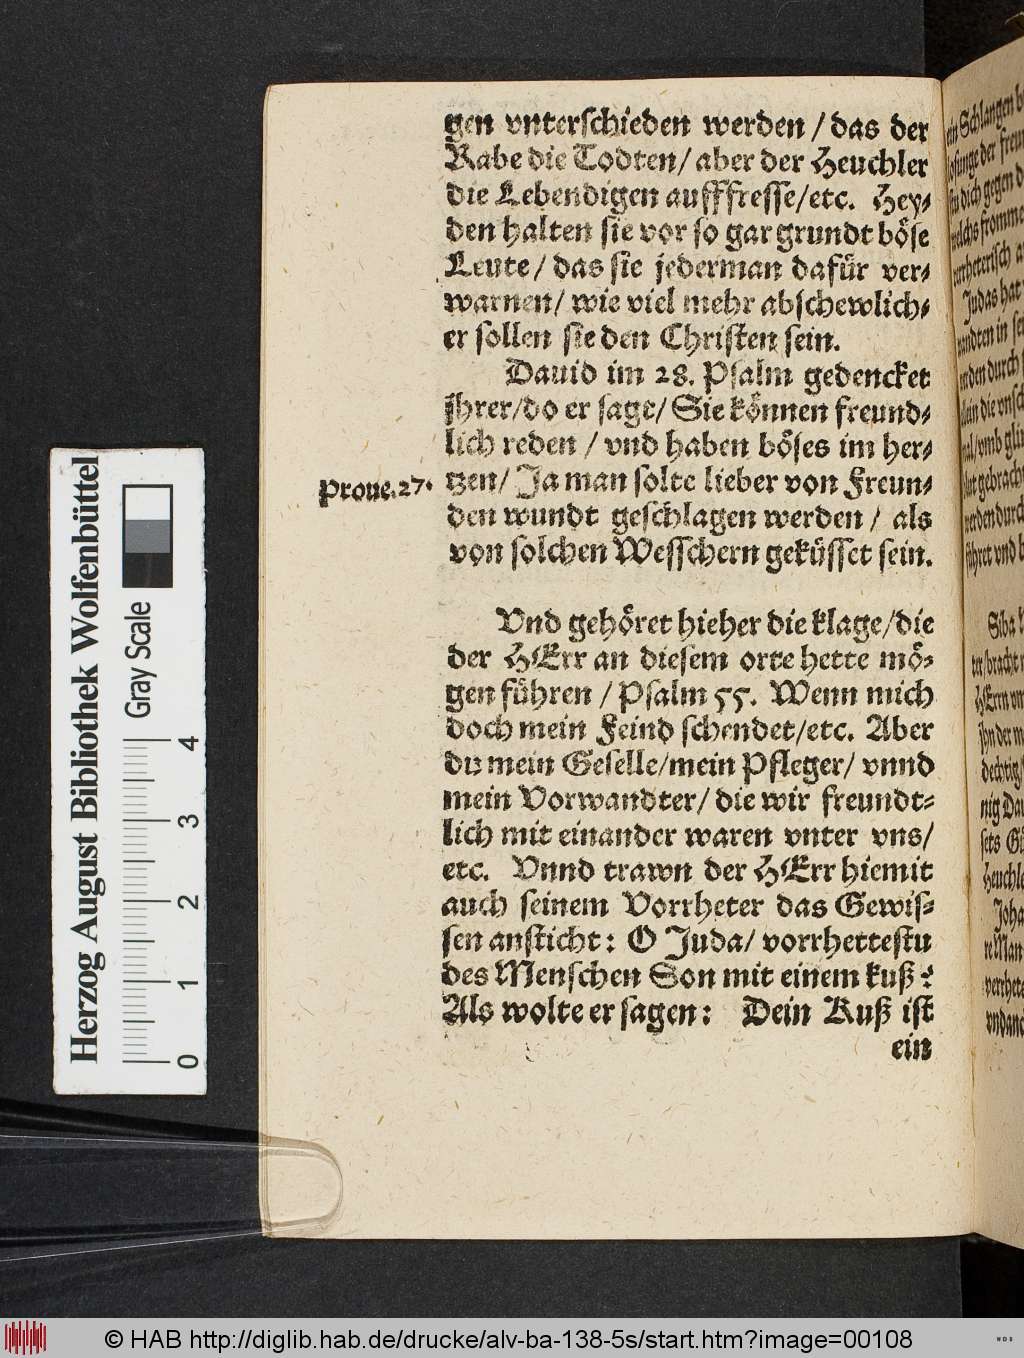 gen vnterschieden werden / das der
Rabe die Todten / aber der Heuchler
die Lebendigen aufffresse / etc. Hey⸗
den halten sie vor so gar grundt böse
Leute / das sie jederman dafür ver⸗
warnen / wie viel mehr abschewlich⸗
er sollen sie den Christen sein.
Dauid im 28. Psalm gedencket
jhrer / do er sagt / Sie können freund⸗
lich reden / vnd haben böses im her⸗
Proue. 27.
tzen / Ja man solte lieber von Freun⸗
den wundt geschlagen werden / als
von solchen Wesschern geküsset sein.
Vnd gehöret hieher die klage / die
der HErr an diesem orte hette mö⸗
gen führen / Psalm 55. Wenn mich
doch mein Feind schendet / etc. Aber
du mein Geselle / mein Pfleger / vnnd
mein Vorwandter / die wir freundt⸗
lich mit einander waren vnter vns /
etc. Vnnd trawn der HErr hiemit
auch seinem Vorrheter das Gewis⸗
sen ansticht: O Juda / vorrhettestu
des Menschen Son mit einem kuß?
Als wolte er sagen: Dein Kuß ist
ein
Herzog August Bibliothek Wolfenbüttel
Gray Scale
0 1 2 3 4
© HAB http://diglib.hab.de/drucke/alv-ba-138-5s/start.htm?image=00108